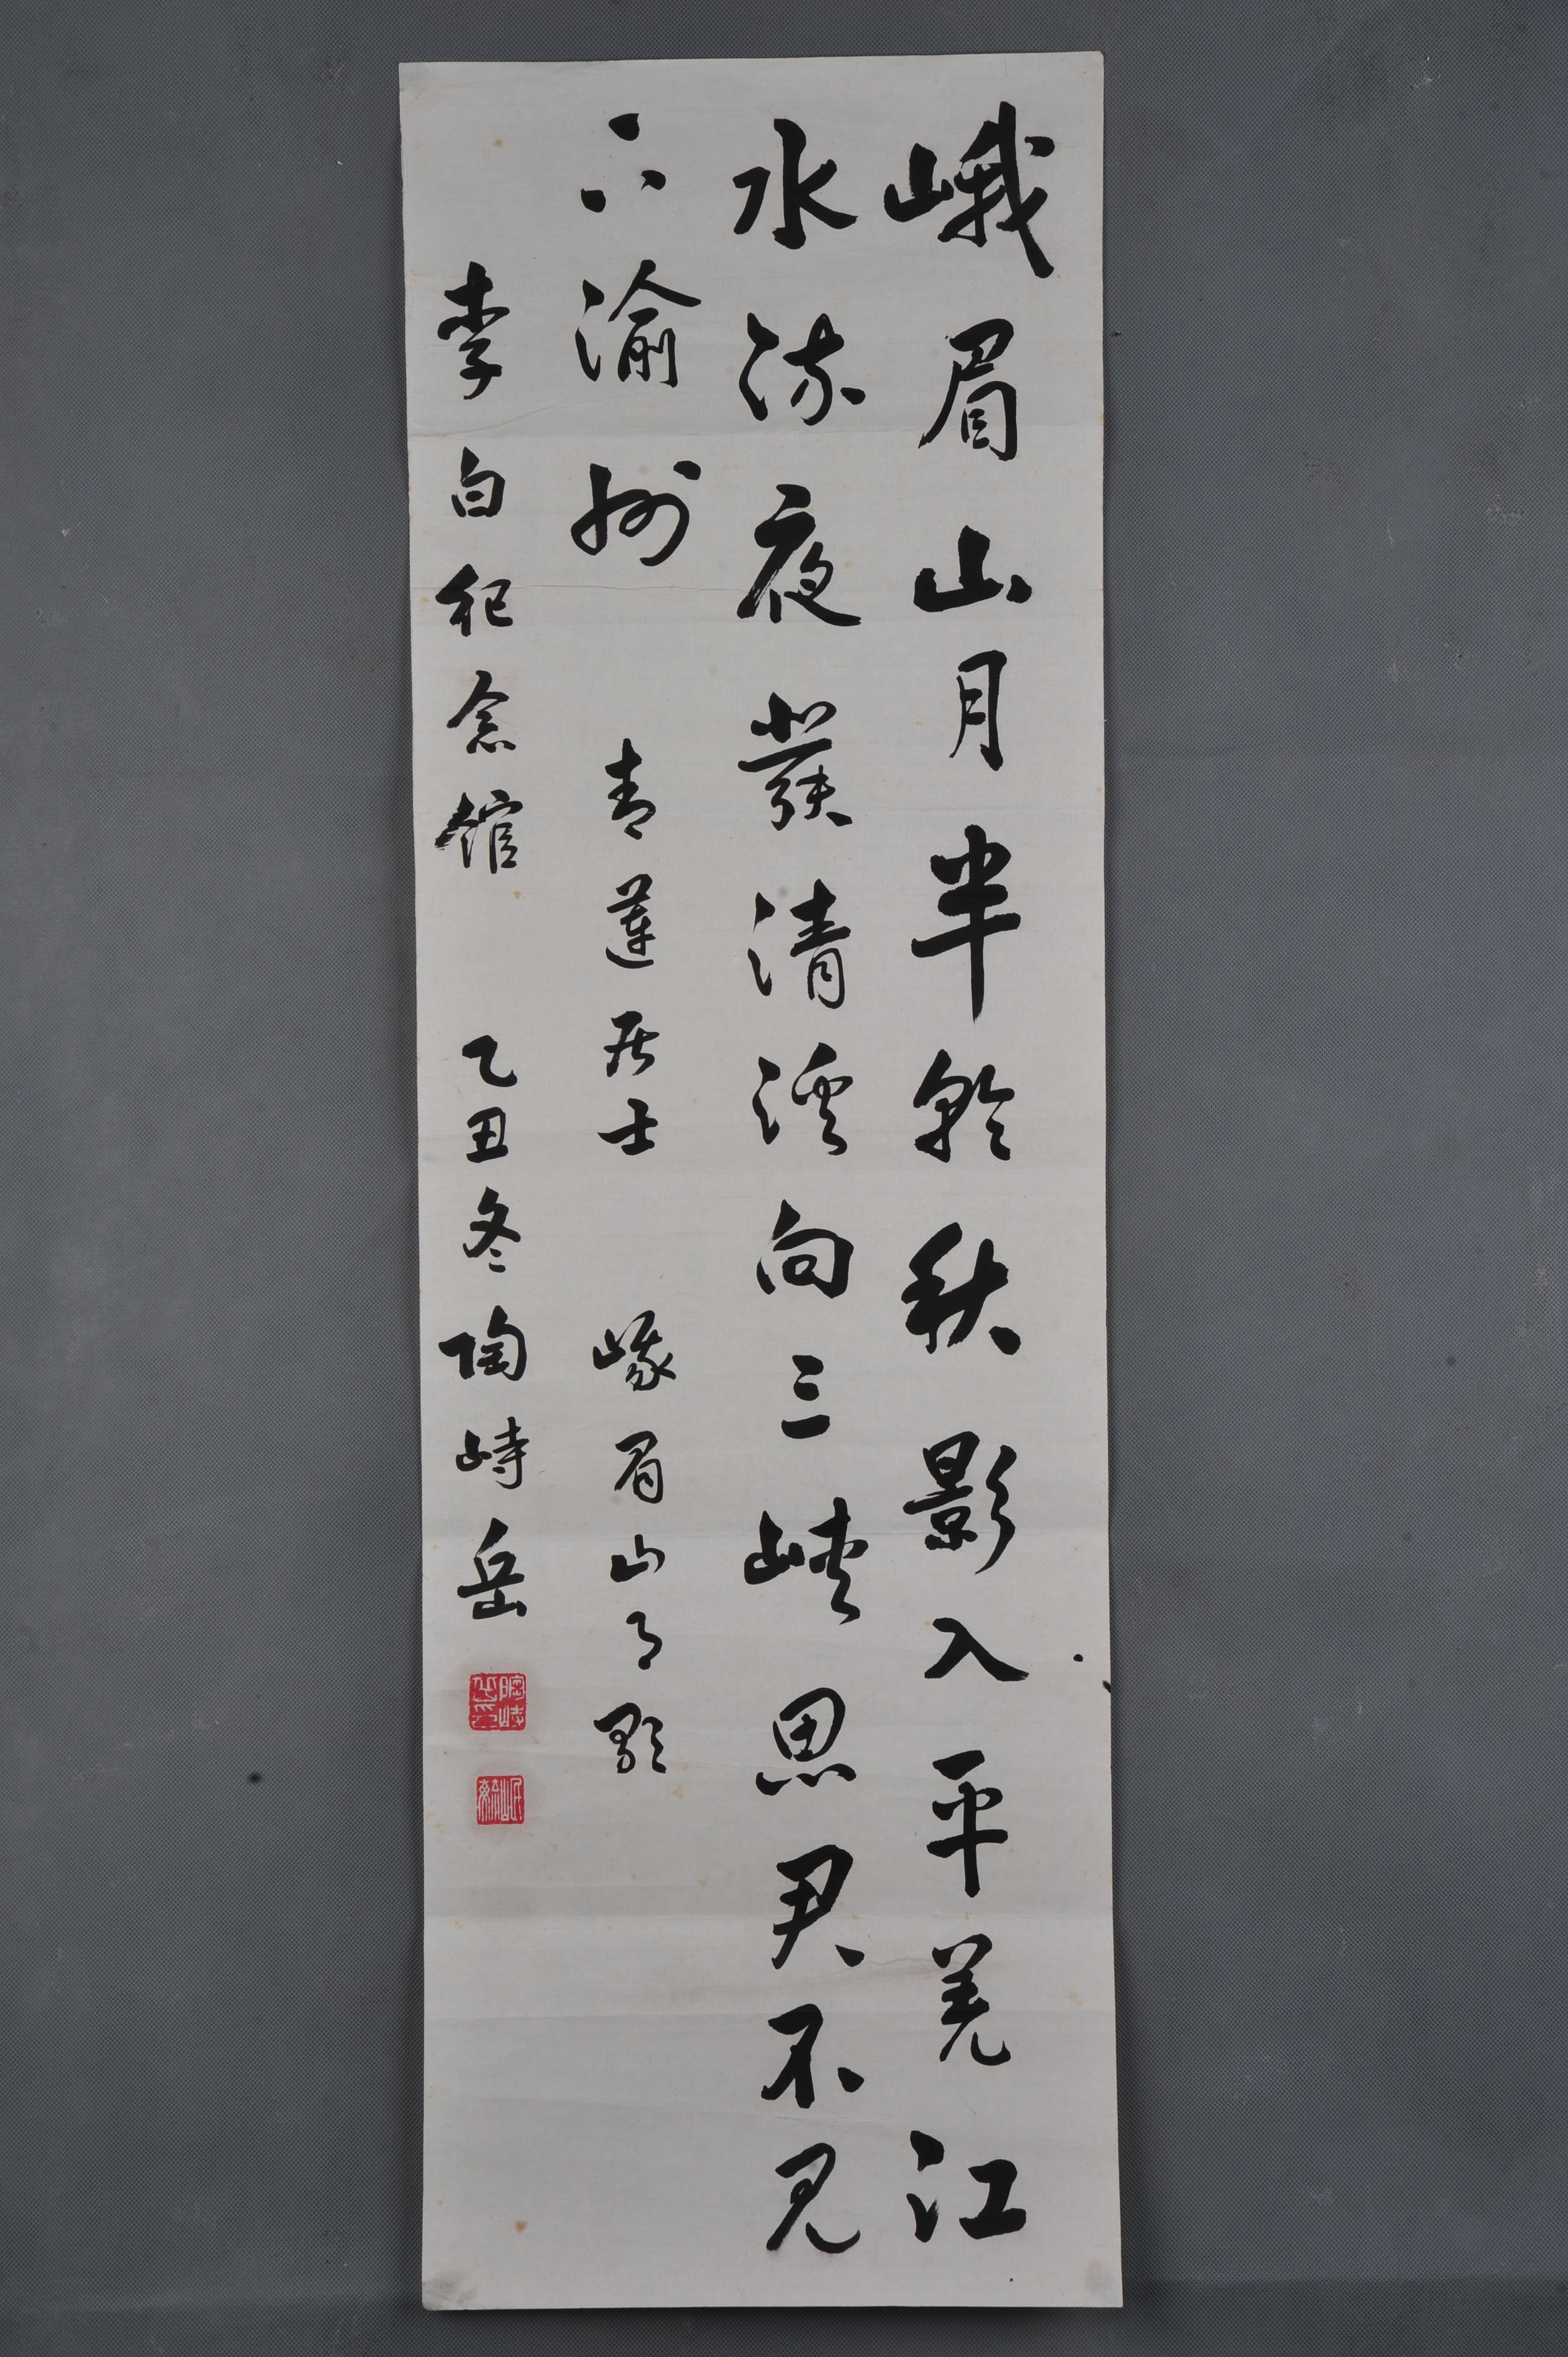 峨眉山月半輪秋影入平羌江
水流夜發清溪向三峽思君不見
下渝州 青蓮居士 峨眉山月歌
李白纪念馆 乙丑冬陶峙岳
陶峙岳印